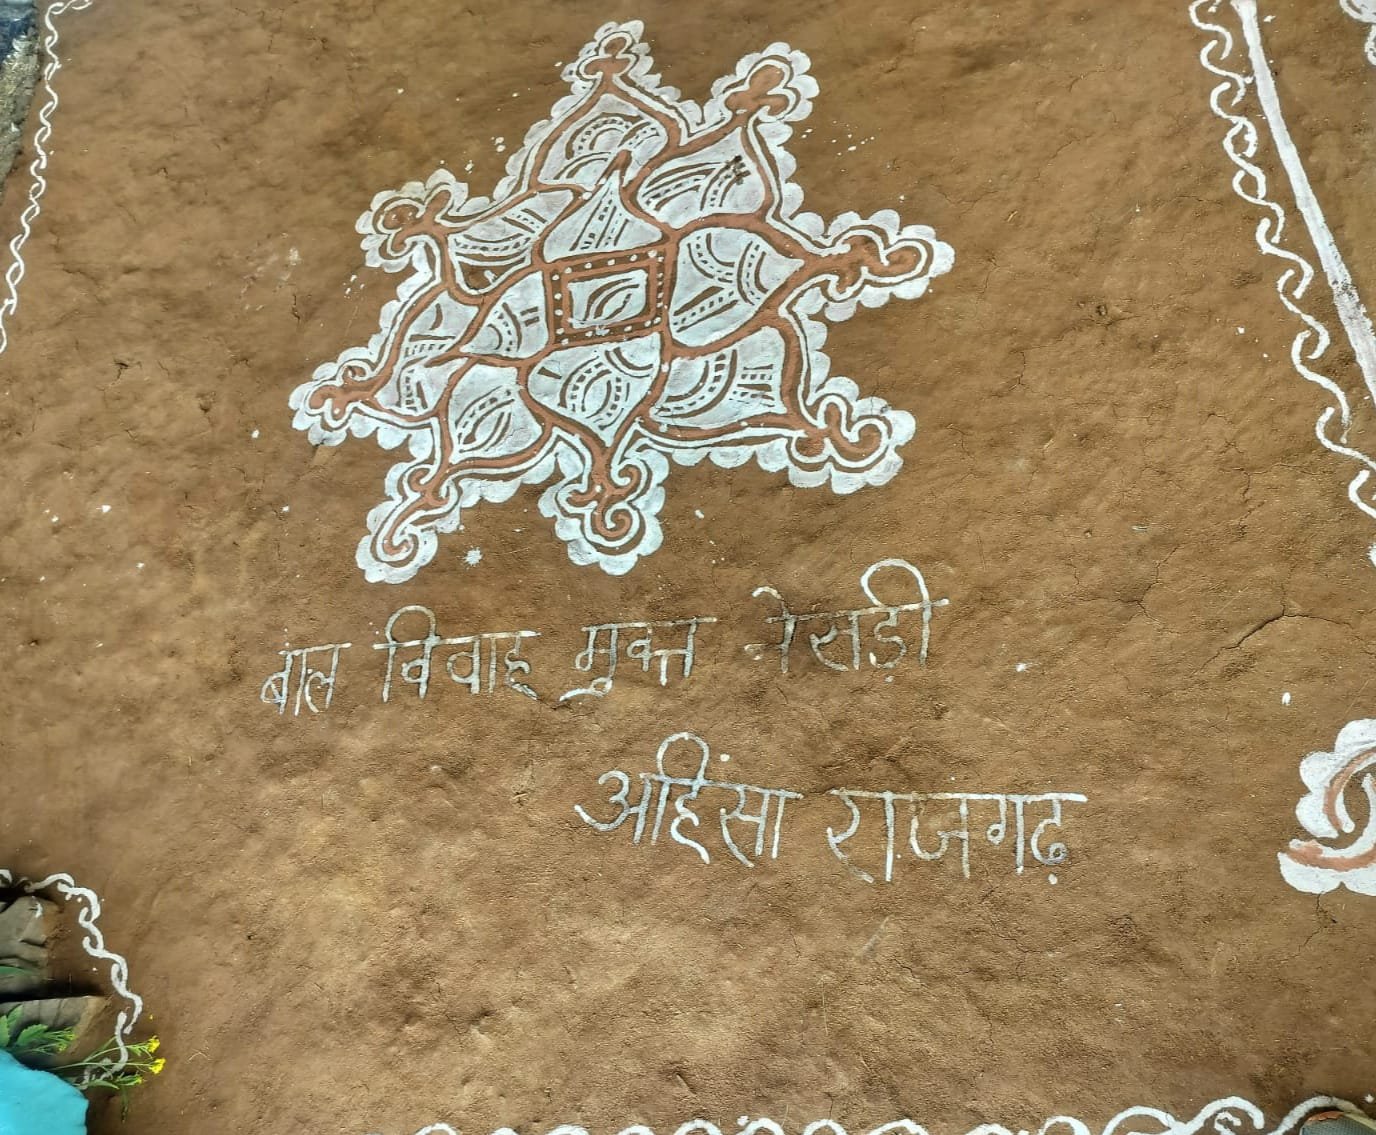 बाल विवाह मुक्त नेसड़ी
अहिंसा राजगढ़